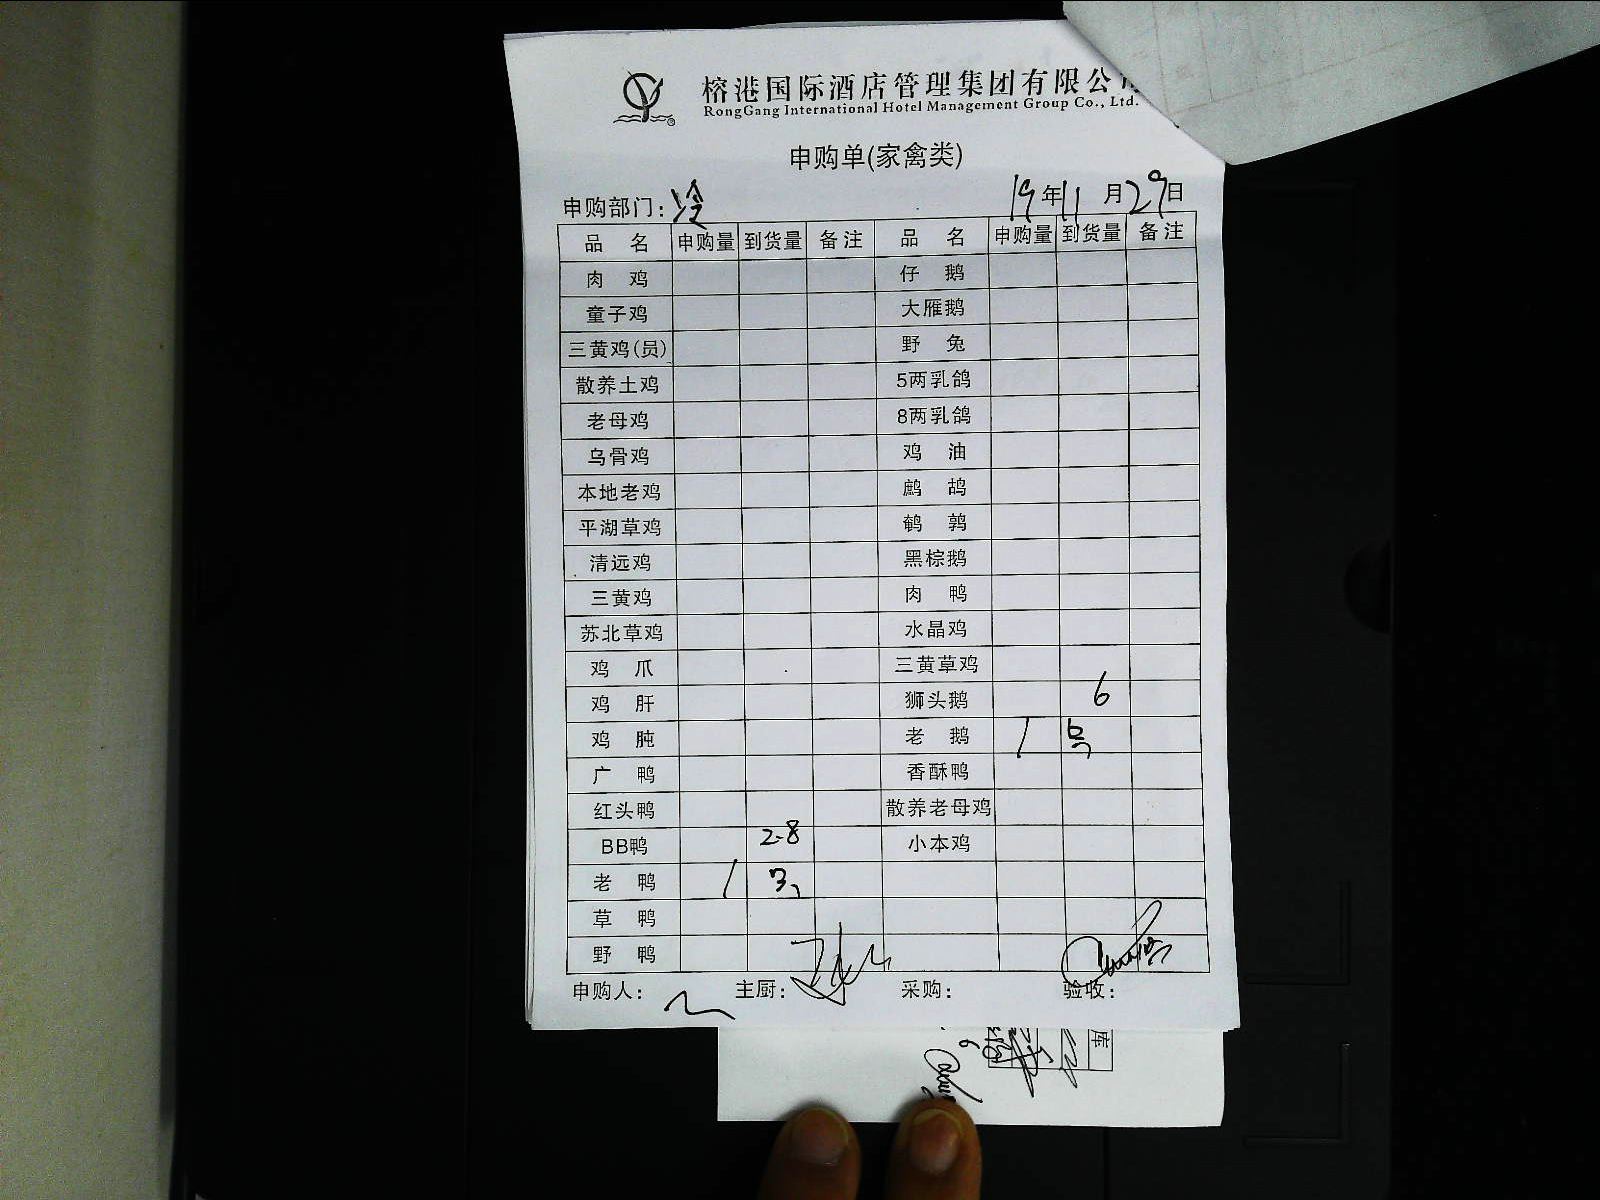 榕港国际酒店管理集团有限公
RongGang International Hotel Management Group Co., Ltd.
申购单(家禽类)
申购部门: 冷 19年11月29日
品名 申购量 到货量 备注 品名 申购量 到货量 备注
肉鸡 仔鹅
童子鸡 大雁鹅
三黄鸡(员) 野兔
散养土鸡 5两乳鸽
老母鸡 8两乳鸽
乌骨鸡 鸡油
本地老鸡 鹧鸪
平湖草鸡 鹌鹑
清远鸡 黑棕鹅
三黄鸡 肉鸭
苏北草鸡 水晶鸡
鸡爪 三黄草鸡
鸡肝 狮头鹅 6
鸡肫 老鹅 1
广鸭 香酥鸭
红头鸭 散养老母鸡
BB鸭 2-8 小本鸡
老鸭 1
草鸭
野鸭
申购人: 主厨: 采购: 验收:
库
6